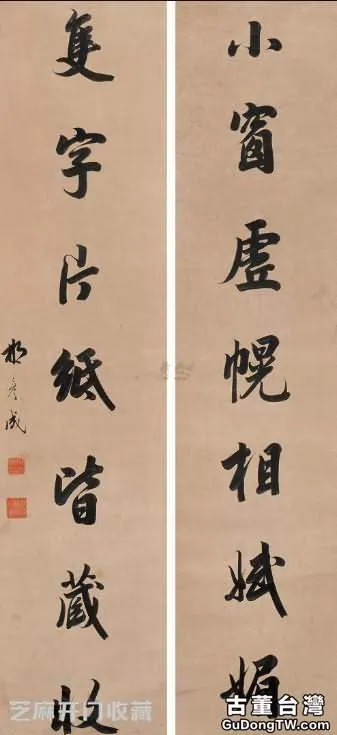 小窗虛幌相娬媚
隻字片紙皆藏收
芝麻开门收藏
古董台灣
GuDongTW.com